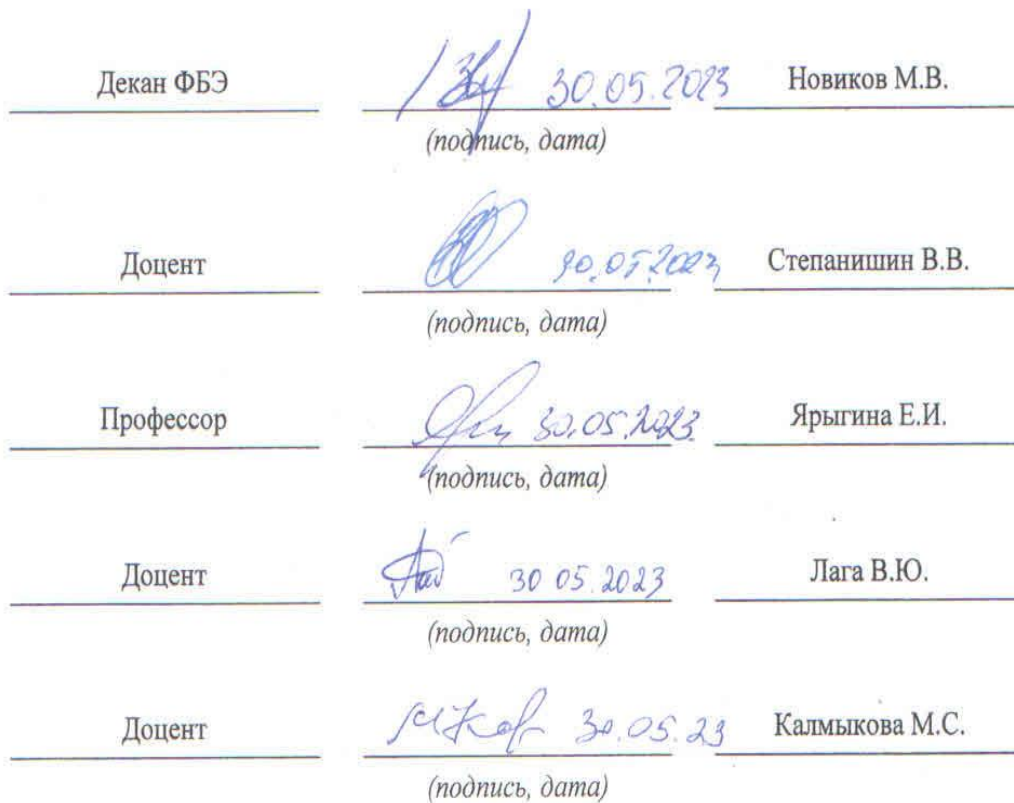 Декан ФБЭ 30.05.2023 Новиков М.В.
(подпись, дата)
Доцент 30.05.2023 Степанишин В.В.
(подпись, дата)
Профессор 30.05.2023 Ярыгина Е.И.
(подпись, дата)
Доцент 30 05.2023 Лага В.Ю.
(подпись, дата)
Доцент 30.05.23 Калмыкова М.С.
(подпись, дата)